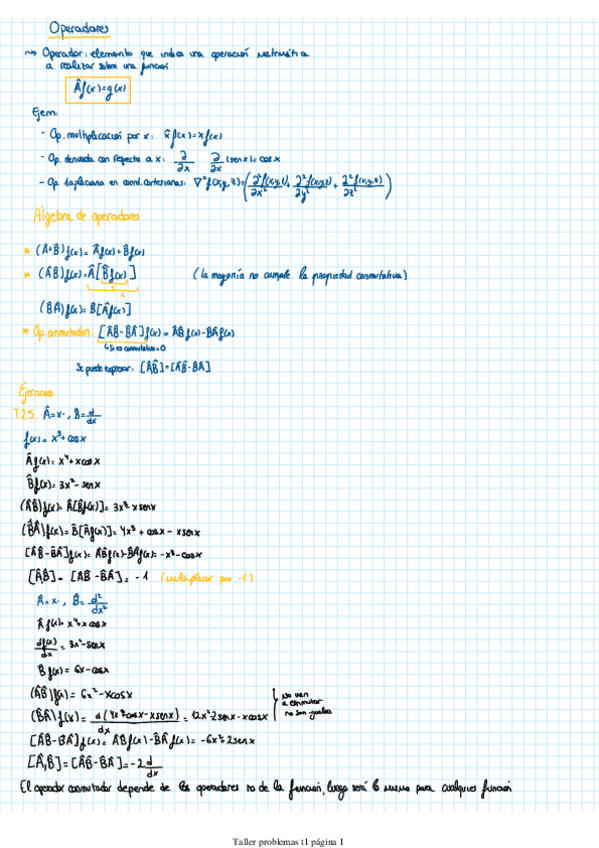 Operadores
~> Operador: elemento que indica una operación matemática
a realizar sobre una función
Âf(x)=g(x)
Ejem:
- Op. multiplicación por x: x̂ f(x)=xf(x)
- Op. derivada con respecto a x: ∂/∂x ∂/∂x (sen x)= cos x
- Op. laplaciana en coord. cartesianas: ∇²f(x,y,z)=(∂²f(x,y,z)/∂x² + ∂²f(x,y,z)/∂y² + ∂²f(x,y,z)/∂z²)
Álgebra de operadores
* (Â+B̂) f(x)= Âf(x)+B̂f(x)
* (ÂB̂) f(x)=Â[B̂f(x)] (la mayoría no cumple la propiedad conmutativa)
1
2
(B̂Â) f(x)= B̂[Âf(x)]
* Op. conmutador: [ÂB̂-B̂Â]f(x)= ÂB̂f(x)-B̂Âf(x)
↳ Si es conmutativo=0
Se puede expresar: [ÂB̂]=[ÂB̂-B̂Â]
Ejercicios
T25. Â=x· , B̂=d/dx
f(x)= x³+cosx
Âf(x)= x⁴+xcosx
B̂f(x)= 3x²-senx
(ÂB̂)f(x)= Â[B̂f(x)]= 3x³-xsenx
(B̂Â)f(x)= B̂[Âf(x)]= 4x³+cosx-xsenx
[ÂB̂-B̂Â]f(x)= ÂB̂f(x)-B̂Âf(x)= -x³-cosx
[ÂB̂]= [ÂB̂-B̂Â]= -1 (multiplicar por -1)
Â=x· , B̂=d²/dx²
Âf(x)= x⁴+xcosx
df(x)/dx = 3x²-senx
B̂f(x)= 6x-cosx
(ÂB̂)f(x)= 6x²-xcosx
(B̂Â)f(x)= d(4x³+cosx-xsenx)/dx = 12x²-2senx-xcosx
no van
a conmutar
no son iguales
[ÂB̂-B̂Â]f(x)= ÂB̂f(x)-B̂Âf(x)= -6x²+2senx
[Â,B̂]=[ÂB̂-B̂Â]=-2d/dx
El operador conmutador depende de los operadores no de la función, luego será lo mismo para cualquier función
Taller problemas t1 página 1